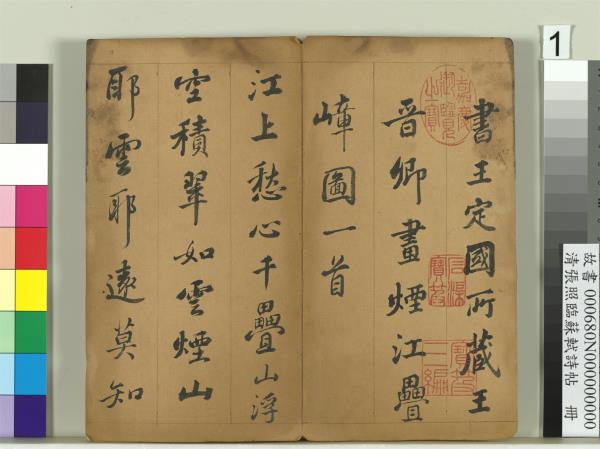 1
書王定國所藏王
晉卿畫煙江疊
嶂圖一首
江上愁心千疊山浮
空積翠如雲煙山
耶雲耶遠莫知
嘉慶御覽之寶
石渠寶笈
寶笈三編
故書 000680N000000000
清張照臨蘇軾詩帖 冊